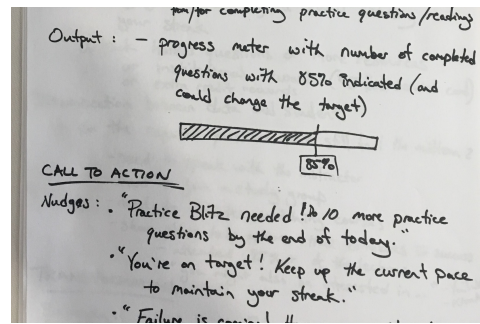 for completing practice questions/readings
Output : – progress meter with number of completed
questions with 85% indicated (and
could change the target)
85%
CALL TO ACTION
Nudges : • "Practice Blitz needed ! Do 10 more practice
questions by the end of today."
• "You're on target ! Keep up the current pace
to maintain your streak."
• "Failure is